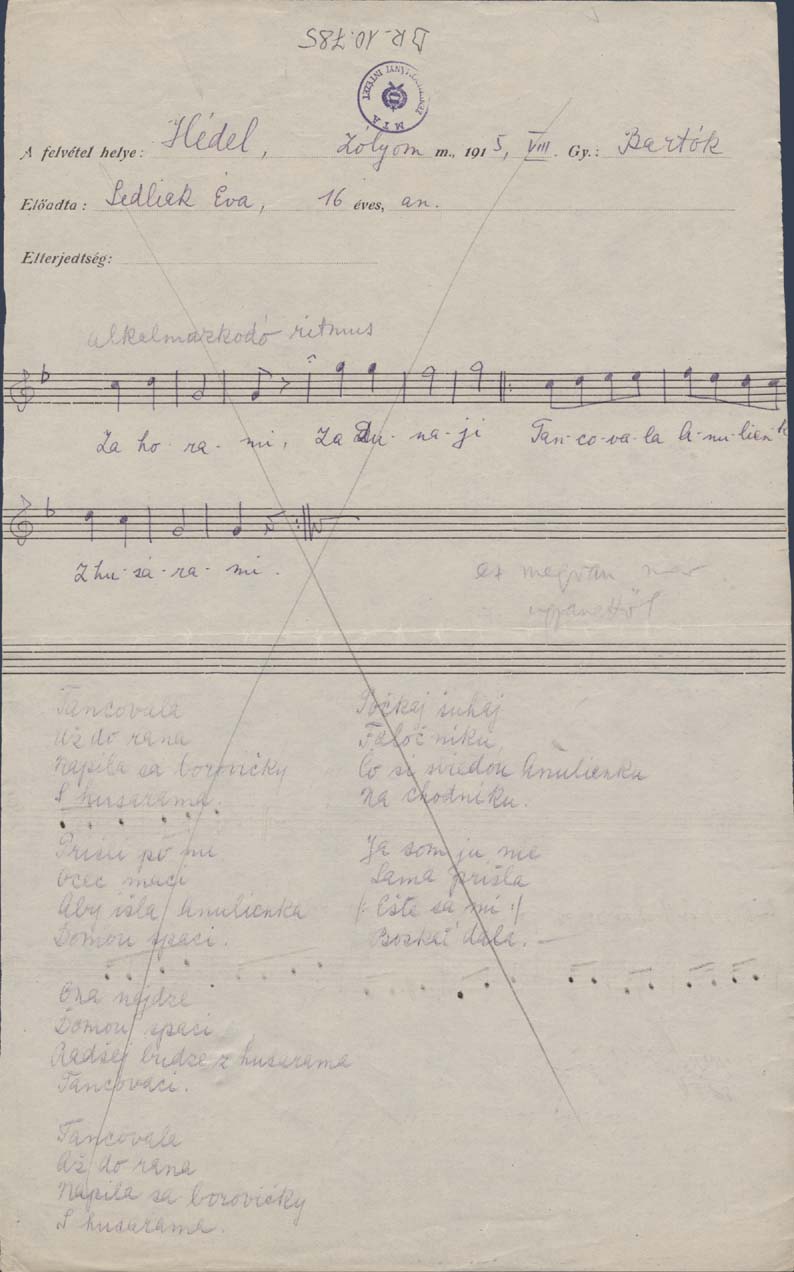 BR. 10.785
MTA
A felvétel helye: Hédel, Zólyom m., 1915, VIII. Gy.: Bartók
Előadta: Sedliak Éva, 16 éves, an.
Elterjedtség:
alkalmazkodó ritmus
Za ho- ra- mi, Za Du- na- ji Tan-co-va-la A-nu-lien-k
Z hu-sa-ra-mi.
ez megvan már
ugyanettől
Tancovala
Už do rana
Napila sa borovičky
S husarama.
Prišli po ňu
Ocec maci
Aby išla Anulienka
Domou spaci.
Ona nejdze
Domou spaci
Radšej budze z husarama
Tancovaci.
Tancovala
Až do rana
Napila sa borovičky
S husarama.
Počkaj šuhaj
Faločniku,
Čo si sviedou Anulienku
Na chodniku.
Ja som ju nie
Sama prišla
/: Ešte sa mi :/
Bozkať dala.